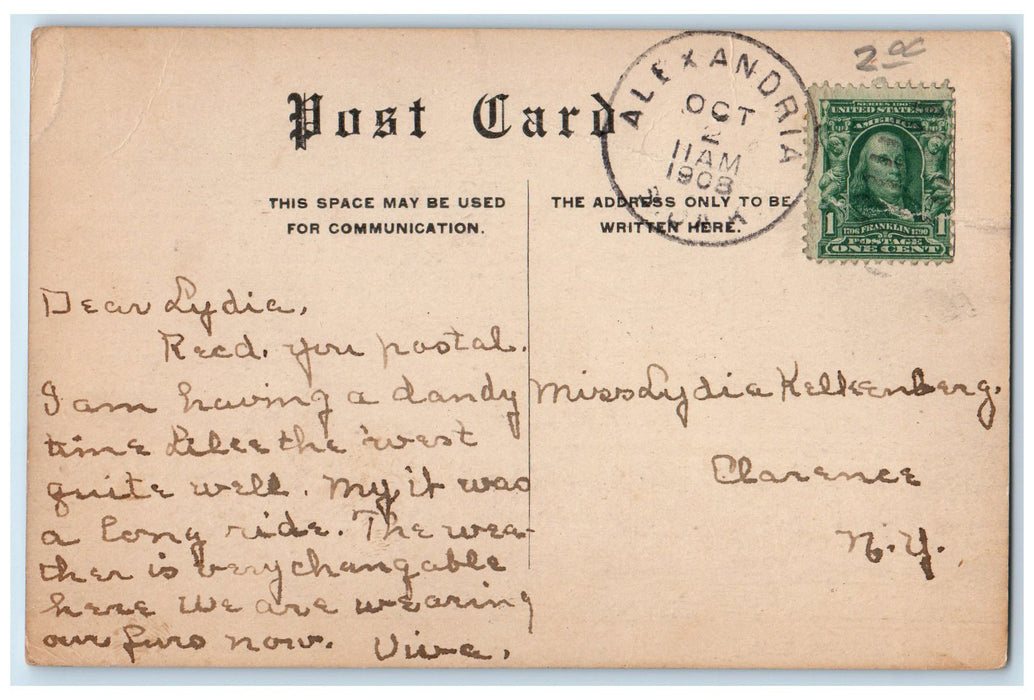 2 00
Post Card
ALEXANDRIA
OCT
2
11 AM
1908
S. DAK.
SERIES 1902
UNITED STATES OF
AMERICA
1 1
1706 FRANKLIN 1790
POSTAGE
ONE CENT
THIS SPACE MAY BE USED
FOR COMMUNICATION.
THE ADDRESS ONLY TO BE
WRITTEN HERE.
Dear Lydia,
Recd. you postal.
I am having a dandy
time like the west
quite well. My it was
a long ride. The wea-
ther is very changable
here We are wearing
our furs now. Viva.
Miss Lydia Kelkenberg.
Clarence
N.Y.